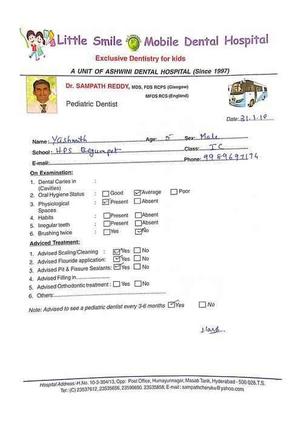 Little Smile Mobile Dental Hospital
Exclusive Dentistry for kids
A UNIT OF ASHWINI DENTAL HOSPITAL (Since 1997)
Dr. SAMPATH REDDY, MDS, FDS RCPS (Glasgow)
MFDS RCS (England)
Pediatric Dentist
Date: 31.1.18
Name: Yashnath Age: 5 Sex: Male
School: HPS Begumpet Class: I C
E-mail: Phone: 9989697174
On Examination:
1. Dental Caries in :
(Cavities)
2. Oral Hygiene Status : Good Average Poor
3. Physiological : Present Absent
Spaces
4. Habits : Present Absent
5. Irregular teeth : Present Absent
6. Brushing twice : Yes No
Adviced Treatment:
1. Advised Scaling/Cleaning : Yes No
2. Advised Flouride application: Yes No
3. Advised Pit & Fissure Sealants: Yes No
4. Advised Filling in
5. Advised Orthodontic treatment : Yes No
6. Others:
Note: Advised to see a pediatric dentist every 3-6 months Yes No
Hospital Address: H.No. 10-3-304/13, Opp: Post Office, Humayunnagar, Masab Tank, Hyderabad - 500 028.T.S.
Tel: (C) 23537612, 23535656, 23590650, 23535858, E-mail: sampathcheruku@yahoo.com